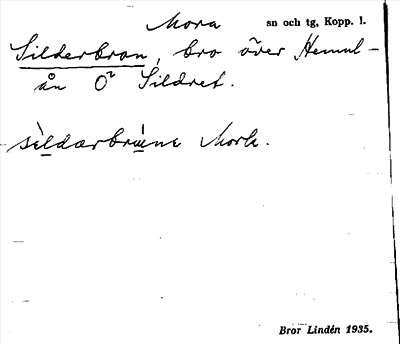 Mora sn och tg, Kopp. l.
Silderbron, bro över Hemul-
ån O² Sildret.
sìldærbrùnę Mork.
Bror Lindén 1935.